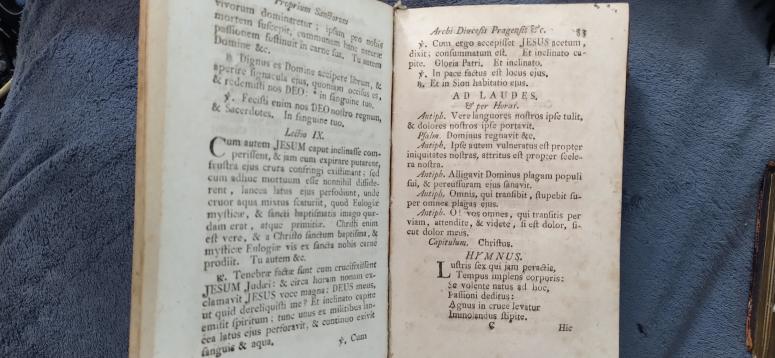 Proprium Sanctorum
vivorum dominaretur; ipsam pro nobis
mortem suscepit, communem hanc naturæ
passionem sustinuit in carne sua. Tu autem
Domine &c.
℟. Dignus es Domine accipere librum, &
aperire signacula ejus, quoniam occisus es,
& redemisti nos DEO: * in sanguine tuo.
℣. Fecisti enim nos DEO nostro regnum,
& Sacerdotes. In sanguine tuo.
Lectio IX.
Cum autem JESUM caput inclinasse com-
perissent, & jam cum expirare putarent,
frustra ejus crura confringi existimant: sed
cum adhuc mortuum esse nonnihil diffide-
rent, lancea latus ejus perfodiunt, unde
cruor aqua mixtus scaturiit, quod Eulogiæ
mysticæ, & sancti baptismatis imago quæ-
dam erat, atque primitiæ. Christi enim
est vere, & a Christo sanctum baptisma, &
mysticæ Eulogiæ vis ex sancta nobis carne
prodiit. Tu autem &c.
℟. Tenebræ factæ sunt cum crucifixissent
JESUM Judæi: & circa horam nonam ex-
clamavit JESUS voce magna: DEUS meus,
ut quid dereliquisti me? Et inclinato capite
emisit spiritum; tunc unus ex militibus lan-
cea latus ejus perforavit, & continuo exivit
sanguis & aqua.
℣. Cum
Archi-Diœcesis Pragensis &c. 33
℣. Cum ergo accepisset JESUS acetum,
dixit: consummatum est. Et inclinato ca-
pite. Gloria Patri. Et inclinato.
℣. In pace factus est locus ejus,
℟. Et in Sion habitatio ejus.
AD LAUDES,
& per Horas.
Antiph. Vere languores nostros ipse tulit,
& dolores nostros ipse portavit.
Psalm. Dominus regnavit &c.
Antiph. Ipse autem vulneratus est propter
iniquitates nostras, attritus est propter scele-
ra nostra.
Antiph. Alligavit Dominus plagam populi
sui, & percussuram ejus sanavit.
Antiph. Omnis, qui transibit, stupebit su-
per omnes plagas ejus.
Antiph. O! vos omnes, qui transitis per
viam, attendite, & videte, si est dolor, si-
cut dolor meus.
Capitulum. Christus.
HYMNUS.
Lustris sex qui jam peractis,
Tempus implens corporis:
Se volente natus ad hoc,
Passioni deditus:
Agnus in cruce levatur
Immolandus stipite.
C Hic